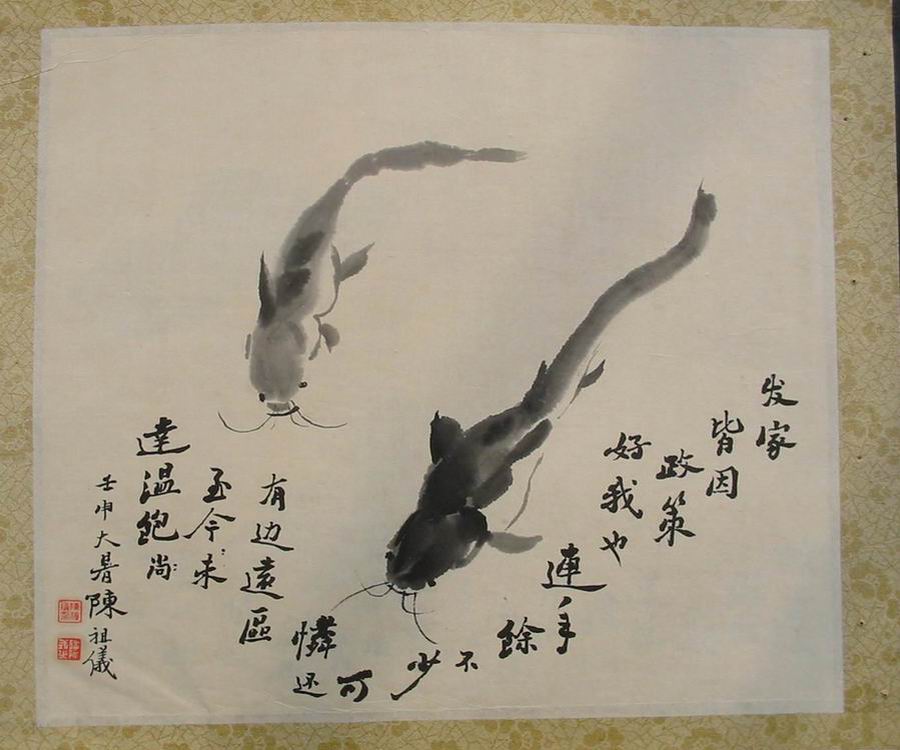 发家
皆因
政策
好我也
連年
餘
不
少
可
憐还
有边遠區
至今未
達温飽尚
壬申大暑陳祖儀